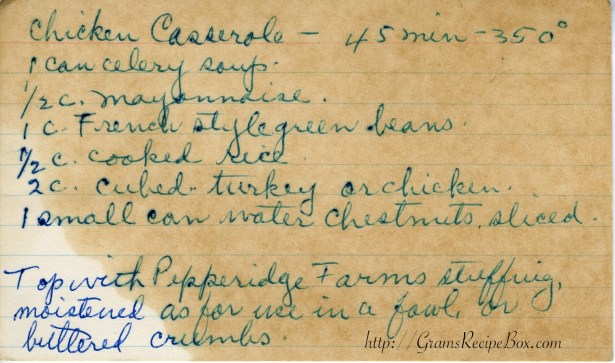 Chicken Casserole - 45 min - 350°
1 can celery soup.
1/2 c. mayonnaise.
1 c. French style green beans.
1/2 c. cooked rice
2 c. cubed turkey or chicken.
1 small can water chestnuts, sliced.
Top with Pepperidge Farms stuffing,
moistened as for use in a fowl, or
buttered crumbs.
http://GramsRecipeBox.com